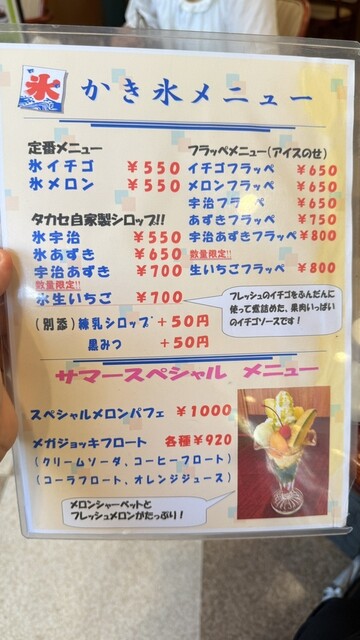 氷
かき氷メニュー
定番メニュー
氷イチゴ ￥550
氷メロン ￥550
タカセ自家製シロップ!!
氷宇治 ￥550
氷あずき ￥650
宇治あずき ￥700
数量限定!!
氷生いちご ￥700
(別添)練乳シロップ +50円
黒みつ +50円
フラッペメニュー(アイスのせ)
イチゴフラッペ ￥650
メロンフラッペ ￥650
宇治フラッペ ￥650
あずきフラッペ ￥750
宇治あずきフラッペ ￥800
数量限定!!
生いちごフラッペ ￥800
フレッシュのイチゴをふんだんに
使って煮詰めた、果肉いっぱい
のイチゴソースです！
サマースペシャル メニュー
スペシャルメロンパフェ ￥1000
メガジョッキフロート 各種￥920
(クリームソーダ、コーヒーフロート)
(コーラフロート、オレンジジュース)
メロンシャーベットと
フレッシュメロンがたっぷり！